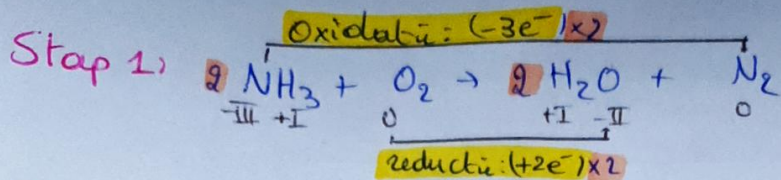 Oxidatie: (-3e⁻)×2
Stap 1) 2 NH₃ + O₂ → 2 H₂O + N₂
-III +I 0 +I -II 0
reductie: (+2e⁻)×2